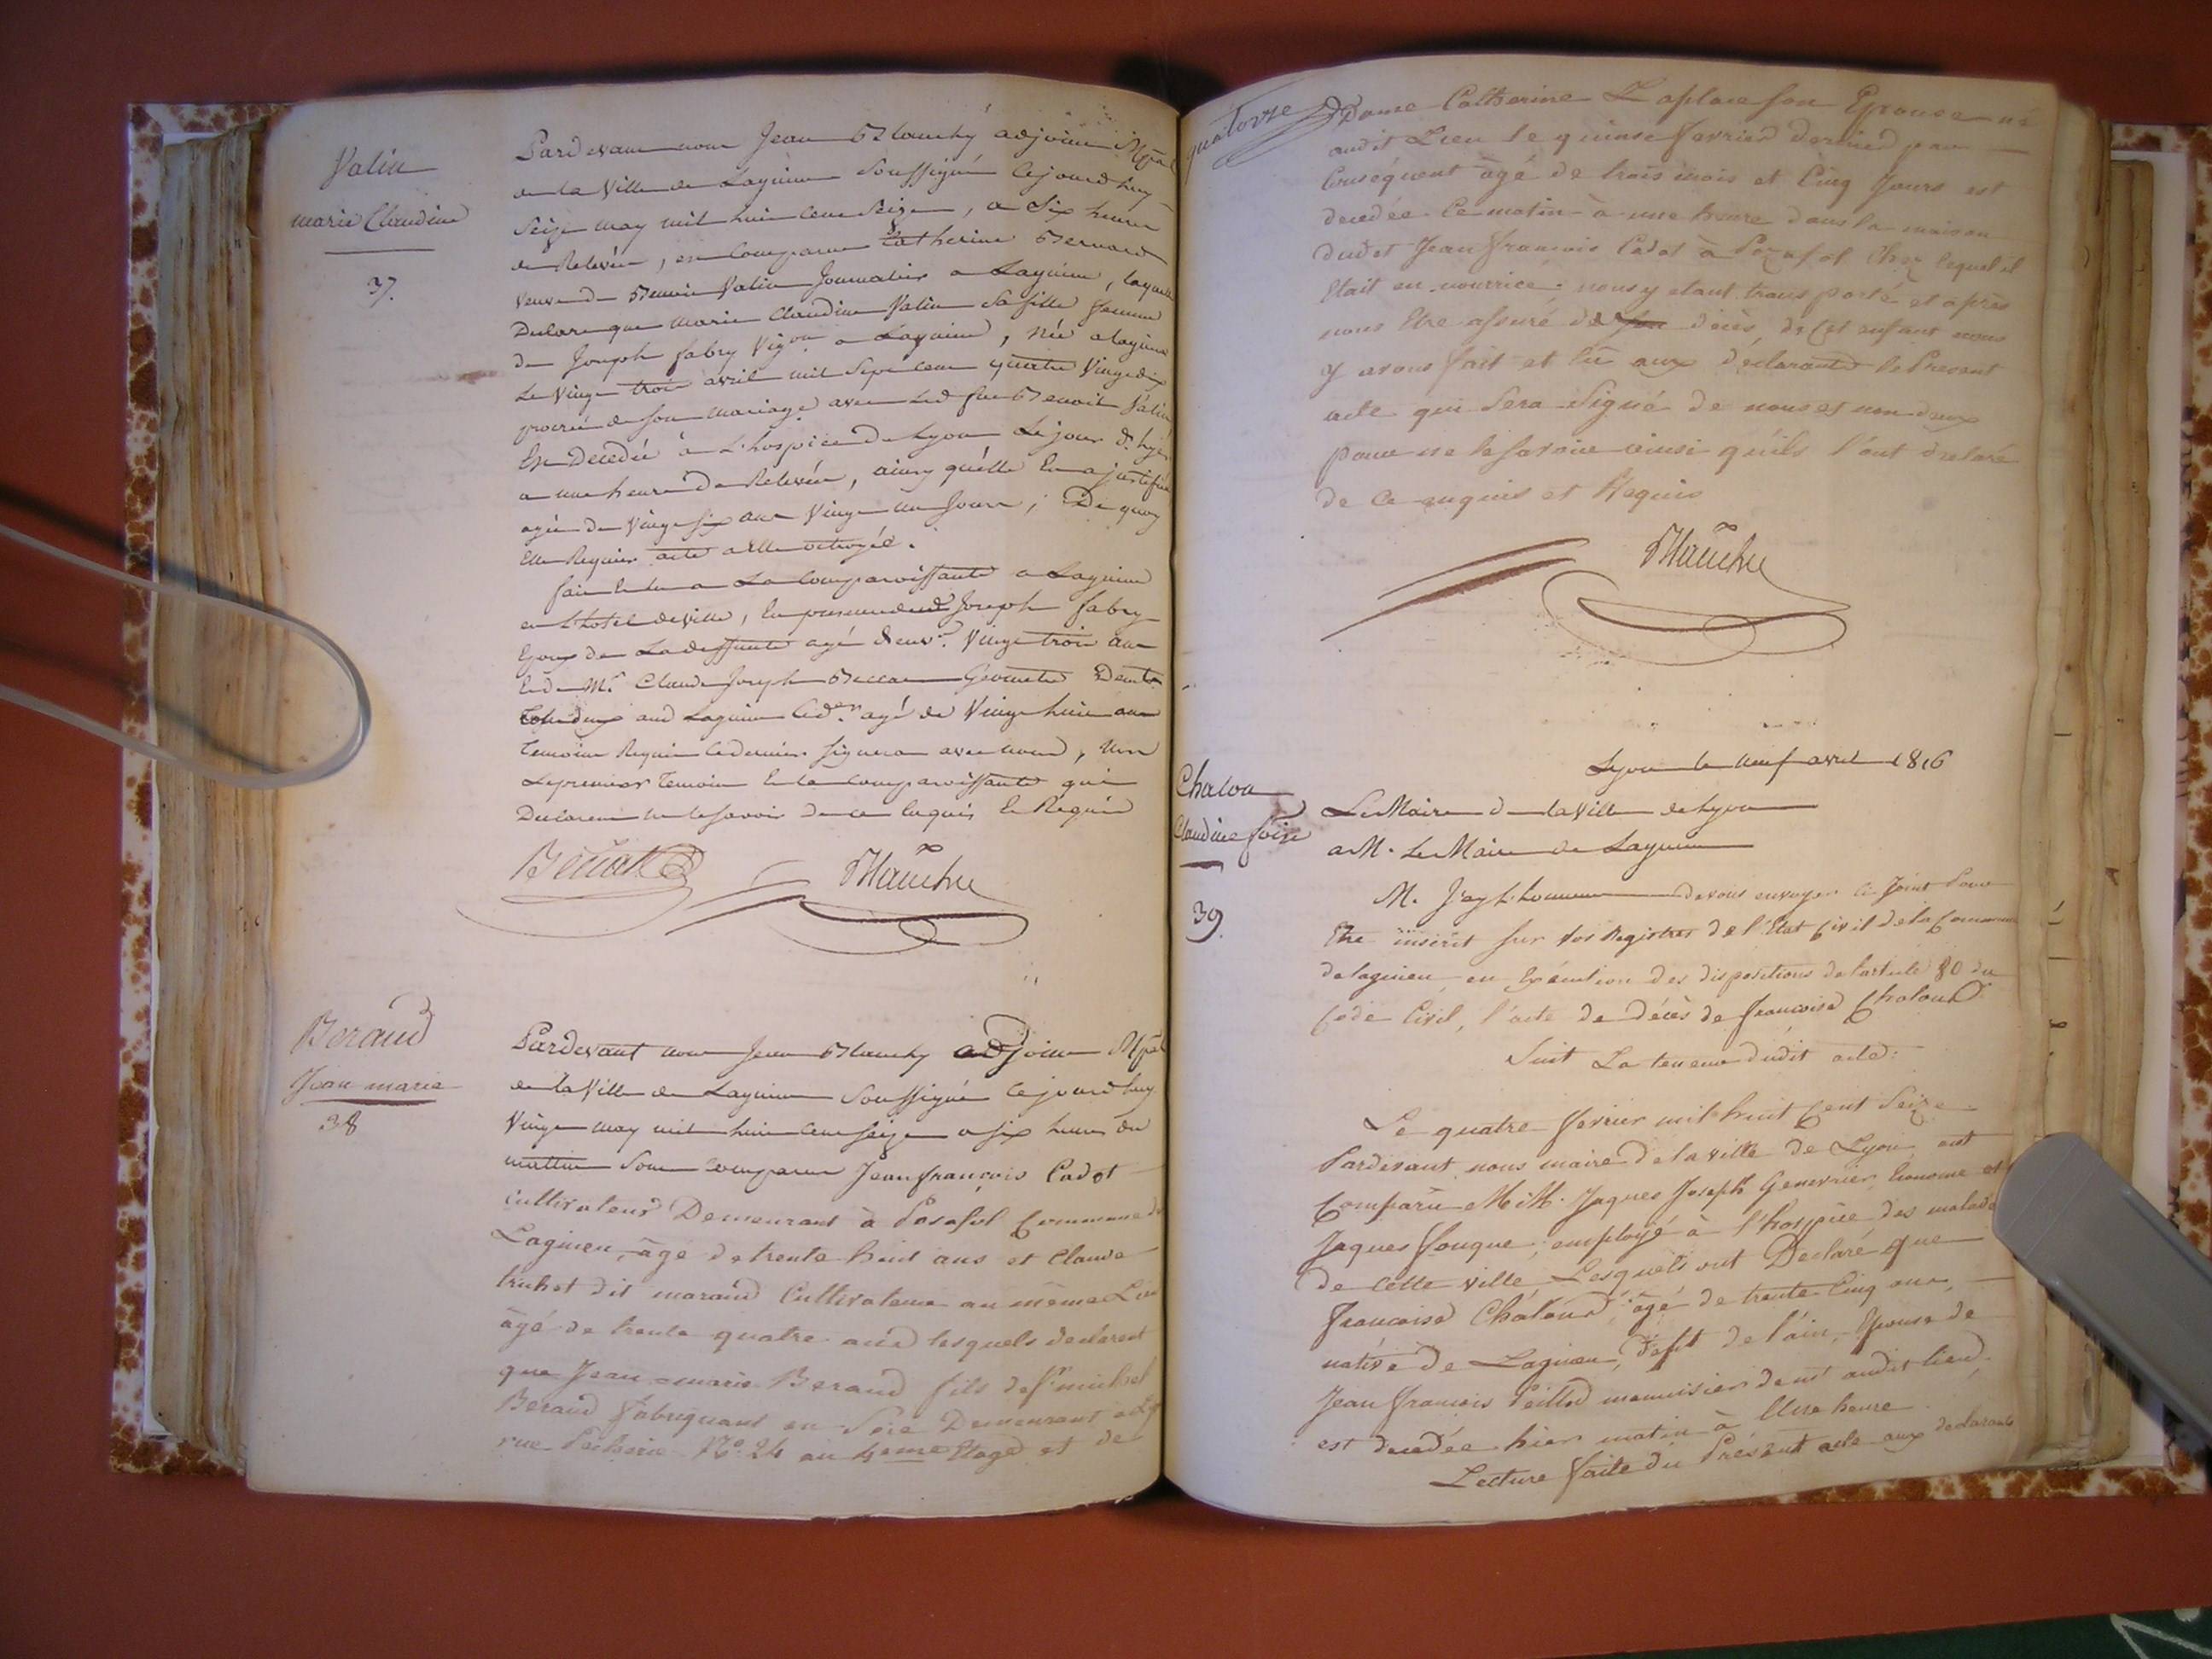 Valin
marie Claudine
37.
Pardevant nous Jean Blanchy adjoint Mpal
de la Ville de Lagnieu Soussigné Cejourdhuy
Seize may mil huit cent Seize, a Six heures
de Relevée, est Comparue Catherine Bernard
veuve de Benoit Valin Journalier a Lagnieu, laquelle
Declare que marie Claudine Valin Sa fille femme
de Joseph fabry Vigon a Lagnieu, née a lagnieu
Le Vingt trois avril mil Sept cent quatre Vingt dix
procréé de son mariage avec led feu Benoit Valin
Est Decedée a L'hospice de Lyon Le jour d'hyer
a une heure de Relevée, ainsy qu'elle En a justifié
agée de Vingt six ans Vingt un Jours; De quoy
Elle Requier acte a Elle octroyée.
fait Et lu a La Comparoissante a Lagnieu
en L'hotel de Ville, En presence de Joseph fabry
Epoux de La deffunte agé d'env.on Vingt trois ans
Et de Mr. Claude Joseph Geometre Demt
tous deux aud Lagnieu Ced.er agé de Vingt huit ans
Temoins Requis Ce dernier signera avec nous, Non
Le premier Temoin Et la Comparoissante qui
Declarent ne le savoir de ce Enquis Et Requis
Blanchy
Beraud
Jean marie
38
Pardevant nous Jean Blanchy adjoint Mpal
de la Ville de Lagnieu Soussigné Cejourdhuy
Vingt may mil huit cent seize a six heures du
mattin Sont comparus Jean françois Cadot
Cultivateur Demeurant à Posafol Commune de
Lagnieu, âgé de trente huit ans et Claude
truchot dit marand Cultivateur au même Lieu
âgé de trente quatre ans lesquels declarent
que Jean-marie Beraud fils de Sr michel
Beraud fabriquant en Soie Demeurant a
rue Pecherie No. 24 au 4eme Etage et de
quatorze
Dame Catherine Laplace son Epouse né
audit Lieu le quinze fevrier dernier par
Conséquent âgé de trois mois et Cinq Jours est
decedée Ce matin à une heure dans la maison
dudit Jean françois Cadot à Posafol Chez lequel il
Etait en nourrice; nous y etant transporté et après
nous Etre assuré de décès de Cet enfant nous
y avons fait et lû aux déclarants le Present
acte qui Sera Signé de nous et non d'eux
pour ne le savoir ainsi qu'ils l'ont declaré
de Ce enquis et Requis
Blanchy
Chalou
Claudine foise
39.
Lyon le neuf avril 1816
Le Maire de la Ville de Lyon
a M. Le Maire de Lagnieu
M. J'ay L'honneur de vous envoyer Ci Joint Pour
Etre inscrit sur vos Registres de l'Etat Civil de la Commune
de lagnieu en Exécution des dispositions de l'article 80 du
Code Civil, l'acte de décès de francoise Chaloud
Suit La teneur dudit acte:
Le quatre fevrier mil huit Cent Seize
Pardevant nous maire de la ville de Lyon, ont
Comparu M.M. Jaques Joseph Genevrier, Econome et
Jaques fouque, employé à l'hospice des malades
de cette ville Lesquels ont Declaré que
francoise Chaloud, âgé de trente Cinq ans,
native de Lagnieu, Dept de l'ain, Epouse de
Jean francois Peillod menuisier demt audit lieu,
est decedée hier matin à Une heure
Lecture faite du Présent acte aux declarants